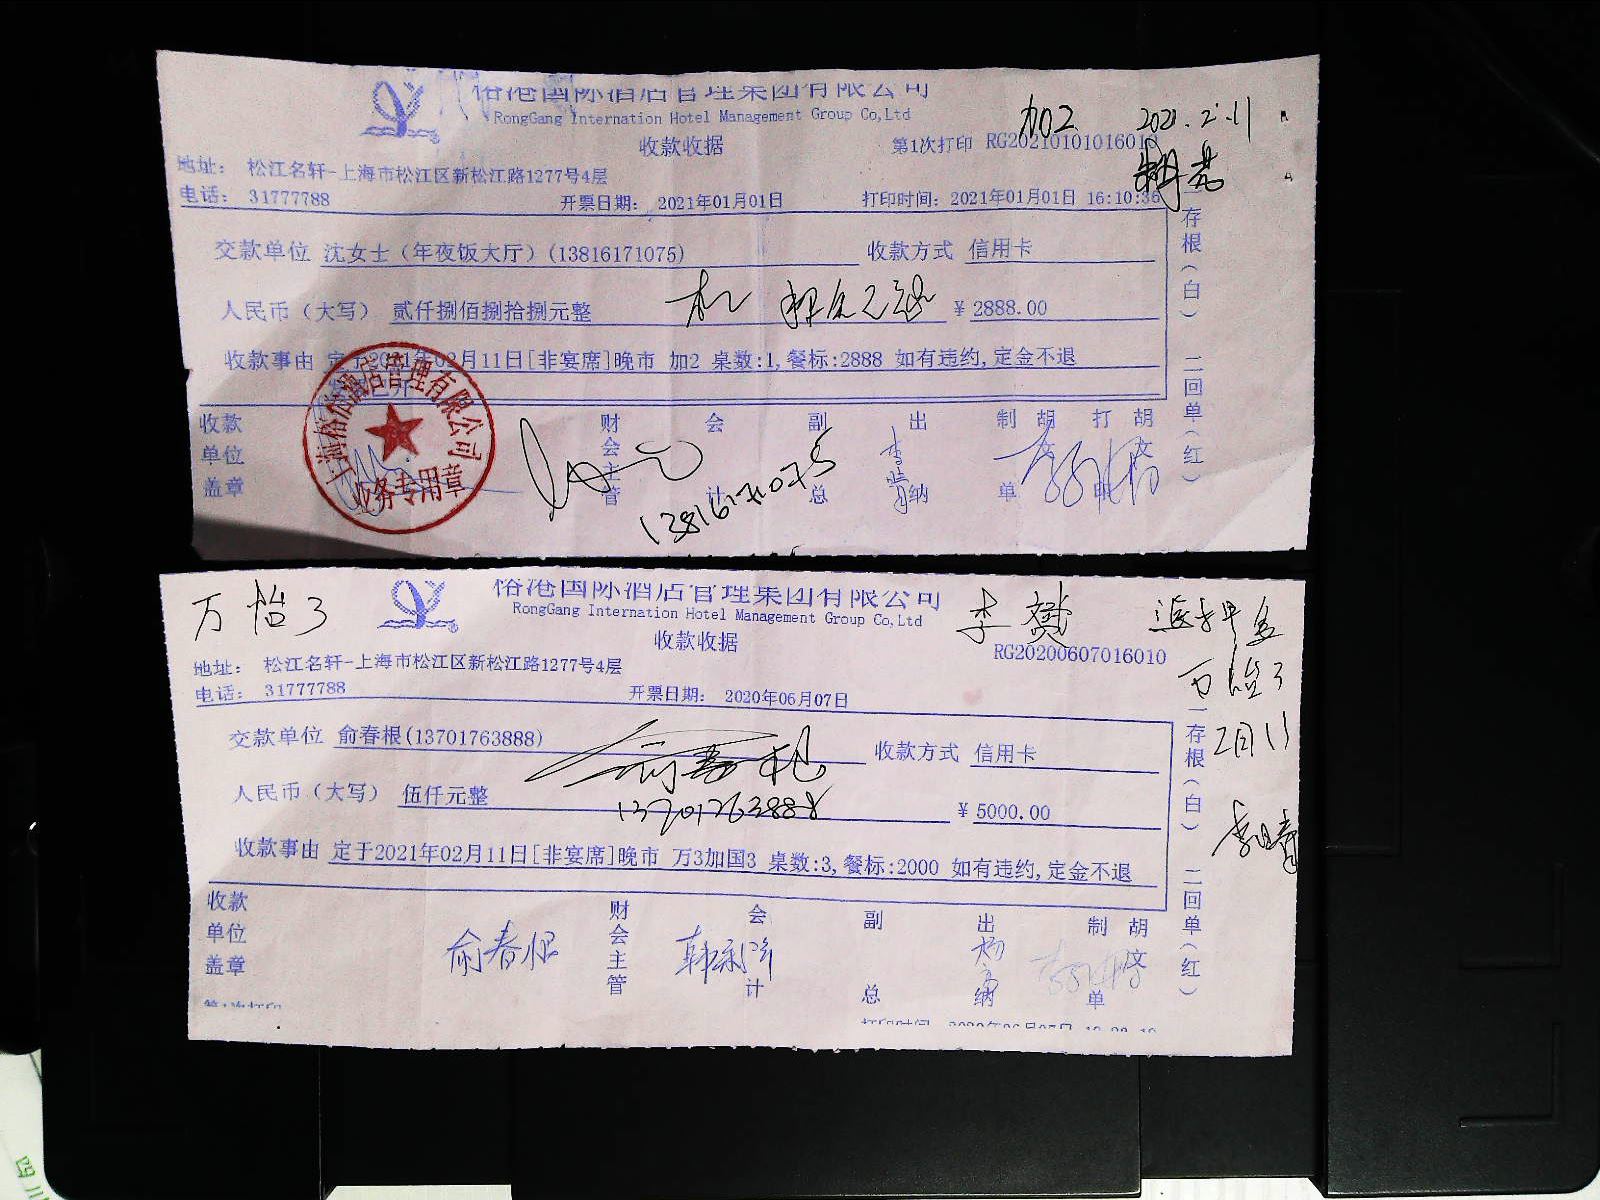 俗港国际酒店管理集团有限公司
RongGang International Hotel Management Group Co,Ltd
加02 2021.2.11
收款收据
第1次打印 RG20210101016010
地址: 松江名轩-上海市松江区新松江路1277号4层
电话: 31777788
开票日期: 2021年01月01日
打印时间: 2021年01月01日 16:10:36
交款单位 沈女士（年夜饭大厅）(13816171075)
收款方式 信用卡
人民币（大写） 贰仟捌佰捌拾捌元整
¥ 2888.00
收款事由 定于2021年02月11日[非宴席]晚市 加2 桌数:1,餐标:2888 如有违约,定金不退
发票已开
收款单位盖章
财会主管
会计
副总
出纳
制单 胡文
打 胡文
13816171075
业务专用章
存根（白） 二回单（红）
万怡3
俗港国际酒店管理集团有限公司
RongGang Internation Hotel Management Group Co,Ltd
退押金
收款收据
RG20200607016010
万怡3
2月11
地址: 松江名轩-上海市松江区新松江路1277号4层
电话: 31777788
开票日期: 2020年06月07日
交款单位 俞春根(13701763888)
俞春根
收款方式 信用卡
人民币（大写） 伍仟元整
13701763888
¥ 5000.00
收款事由 定于2021年02月11日[非宴席]晚市 万3加国3 桌数:3,餐标:2000 如有违约,定金不退
收款单位盖章
俞春根
财会主管
会计
副总
出纳
制单 胡文
存根（白） 二回单（红）
第1次打印